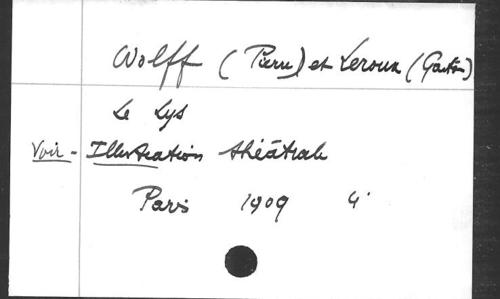 Wolff (Pierre) et Leroux (Gaston)
Le Lys
Voir - Illustration théâtrale
Paris 1909 4°